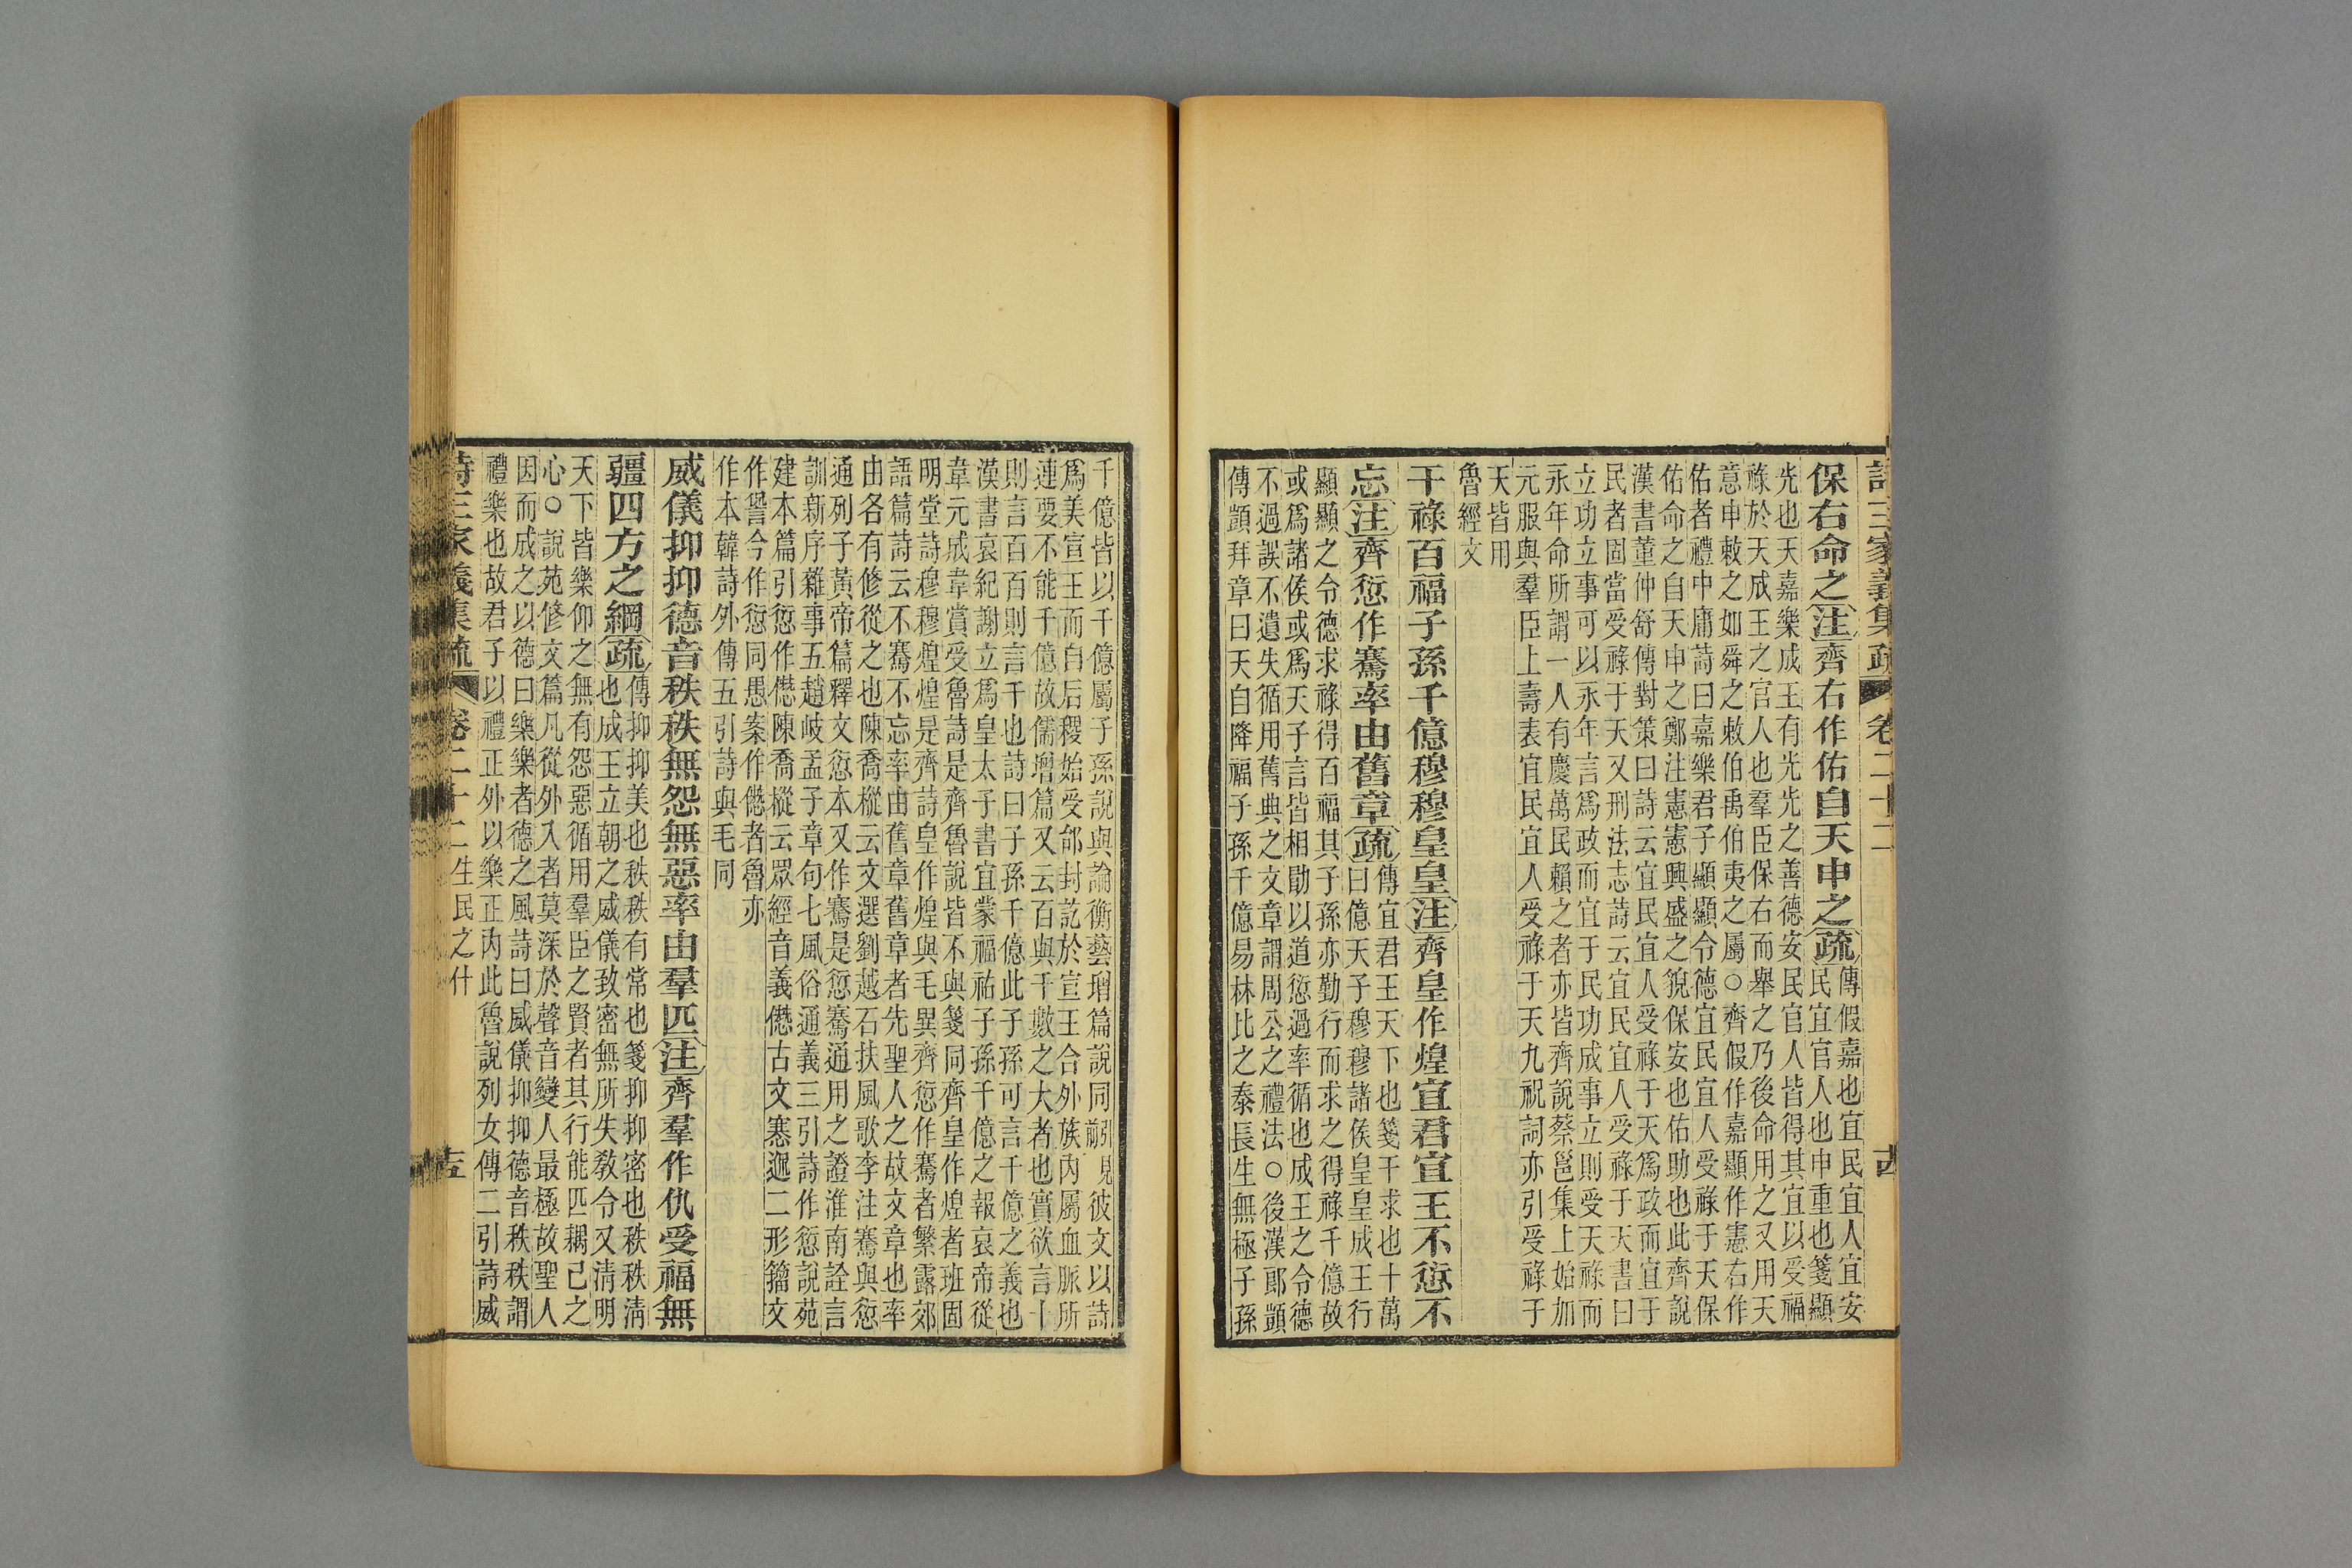 詩三家義集疏 卷二十二 古
保右命之注齊右作佑自天申之疏傳假嘉也宜民宜人宜安
民宜官人也申重也箋顯
光也天嘉樂成王有光光之善德安民官人皆得其宜以受福
祿於天成王之官人也羣臣保右而舉之乃後命用之又用天
意申敕之如舜之敕伯禹伯夷之屬○齊假作嘉顯作憲右作
佑者禮中庸詩曰嘉樂君子顯顯令德宜民宜人受祿于天保
佑命之自天申之鄭注憲憲興盛之貌保安也佑助也此齊說
漢書董仲舒傳對策曰詩云宜民宜人受祿于天爲政而宜于
民者固當受祿于天又刑法志詩云宜民宜人受祿于天書曰
立功立事可以永年言爲政而宜于民功成事立則受天祿而
永年命所謂一人有慶萬民賴之者亦皆齊說蔡邕集上始加
元服與羣臣上壽表宜民宜人受祿于天九祝詞亦引受祿于
天皆用
魯經文
干祿百福子孫千億穆穆皇皇注齊皇作煌宜君宜王不愆不
忘注齊愆作騫率由舊章疏傳宜君王天下也箋干求也十萬
曰億天子穆穆諸侯皇皇成王行
顯顯之令德求祿得百福其子孫亦勤行而求之得祿千億故
或爲諸侯或爲天子言皆相勖以道愆過率循也成王之令德
不過誤不遺失循用舊典之文章謂周公之禮法○後漢郎顗
傳顗拜章曰天自降福子孫千億易林比之泰長生無極子孫
千億皆以千億屬子孫說與論衡藝增篇說同說見彼文以詩
爲美宣王而自后稷始受邰封訖於宣王合外族內屬血脈所
連要不能千億故儒增篇又云百與千數之大者也實欲言十
則言百百則言千也詩曰子孫千億此子孫可言千億之義也
漢書哀紀謝立爲皇太子書宜蒙福祐子孫千億之報哀帝從
韋元成韋賞受魯詩是齊魯說皆不與箋同齊皇作煌者班固
明堂詩穆穆煌煌是齊詩皇作煌與毛異齊愆作騫者繁露郊
語篇詩云不騫不忘率由舊章舊章者先聖人之故文章也率
由各有修從之也陳喬樅云文選劉越石扶風歌李注騫與愆
通列子黃帝篇釋文愆本又作騫是愆騫通用之證淮南詮言
訓新序雜事五趙岐孟子章句七風俗通義三引詩作愆說苑
建本篇引愆作僁陳喬樅云眾經音義僁古文寋䢭二形籀文
作諐今作愆同愚案作僁者魯亦
作本韓詩外傳五引詩與毛同
威儀抑抑德音秩秩無怨無惡率由羣匹注齊羣作仇受福無
疆四方之綱疏傳抑抑美也秩秩有常也箋抑抑密也秩秩淸
也成王立朝之威儀致密無所失敎令又淸明
天下皆樂仰之無有怨惡循用羣臣之賢者其行能匹耦己之
心○說苑修文篇凡從外入者莫深於聲音變人最極故聖人
因而成之以德曰樂樂者德之風詩曰威儀抑抑德音秩秩謂
禮樂也故君子以禮正外以樂正內此魯說列女傳二引詩威
詩三家義集疏 卷二十二 生民之什 十五